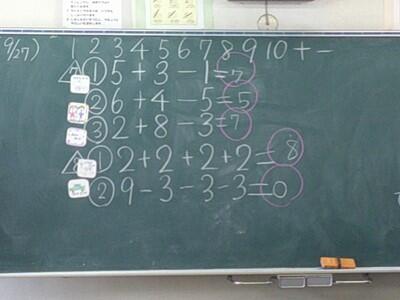 9/27) 1 2 3 4 5 6 7 8 9 10 + −
① 5 + 3 − 1 = 7
② 6 + 4 − 5 = 5
③ 2 + 8 − 3 = 7
① 2 + 2 + 2 + 2 = 8
② 9 − 3 − 3 − 3 = 0